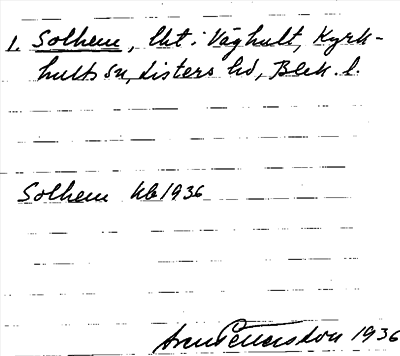 1. Solhem, lht i Våghult, Kyrk-
hults sn, Listers hd, Blek. l.
Solhem kb 1936
1936